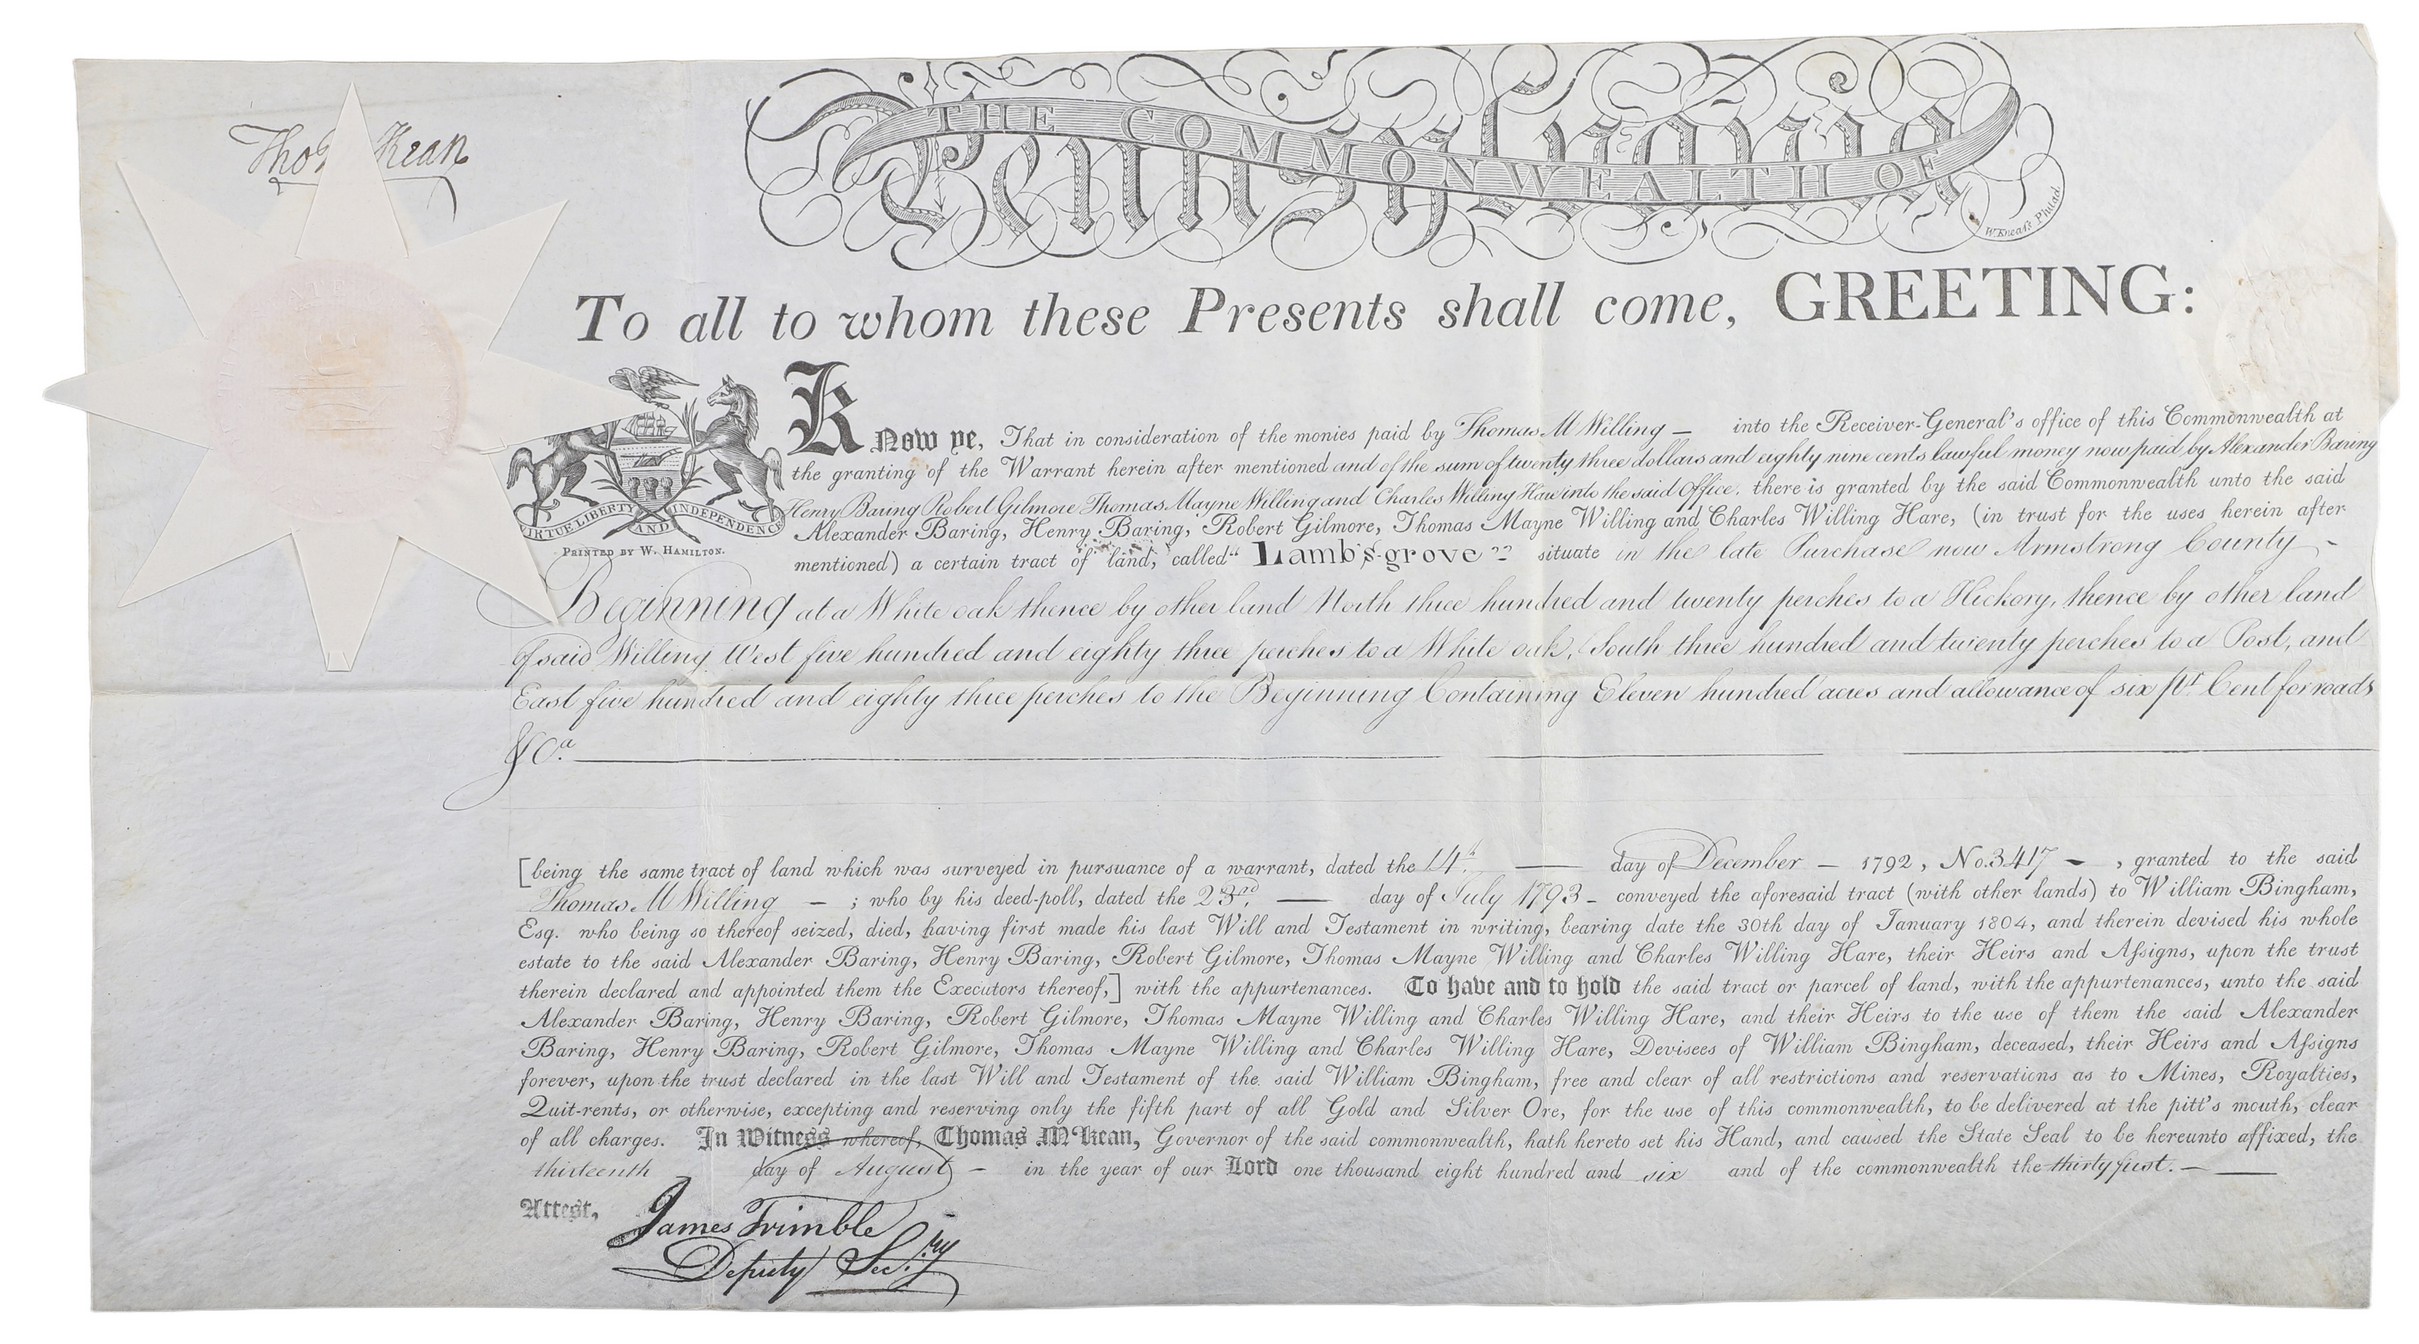 Tho Kean
THE COMMONWEALTH OF
Pennsylvania
W. Kneass Philad.
To all to whom these Presents shall come, GREETING:
VIRTUE LIBERTY AND INDEPENDENCE
PRINTED BY W. HAMILTON.
Know ye, That in consideration of the monies paid by Thomas M Willing — into the Receiver-General's office of this Commonwealth at
the granting of the Warrant herein after mentioned and of the sum of twenty three dollars and eighty nine cents lawful money now paid by Alexander Baring
Henry Baring Robert Gilmore Thomas Mayne Willing and Charles Willing Hare into the said Office, there is granted by the said Commonwealth unto the said
Alexander Baring, Henry Baring, Robert Gilmore, Thomas Mayne Willing and Charles Willing Hare, (in trust for the uses herein after
mentioned) a certain tract of land, called "Lamb's-grove" situate in the late Purchase now Armstrong County —
Beginning at a White oak thence by other land North three hundred and twenty perches to a Hickory, thence by other land
of said Willing West five hundred and eighty three perches to a White oak, South three hundred and twenty perches to a Post, and
East five hundred and eighty three perches to the Beginning Containing Eleven hundred acres and allowance of six pr. Cent for roads
&Ca.
[being the same tract of land which was surveyed in pursuance of a warrant, dated the 14th — day of December — 1792, No. 3417 — , granted to the said
Thomas M Willing — ; who by his deed-poll, dated the 23rd, — day of July 1793 — conveyed the aforesaid tract (with other lands) to William Bingham,
Esq. who being so thereof seized, died, having first made his last Will and Testament in writing, bearing date the 30th day of January 1804, and therein devised his whole
estate to the said Alexander Baring, Henry Baring, Robert Gilmore, Thomas Mayne Willing and Charles Willing Hare, their Heirs and Aſsigns, upon the trust
therein declared and appointed them the Executors thereof,] with the appurtenances. To have and to hold the said tract or parcel of land, with the appurtenances, unto the said
Alexander Baring, Henry Baring, Robert Gilmore, Thomas Mayne Willing and Charles Willing Hare, and their Heirs to the use of them the said Alexander
Baring, Henry Baring, Robert Gilmore, Thomas Mayne Willing and Charles Willing Hare, Devisees of William Bingham, deceased, their Heirs and Aſsigns
forever, upon the trust declared in the last Will and Testament of the said William Bingham, free and clear of all restrictions and reservations as to Mines, Royalties,
Quit-rents, or otherwise, excepting and reserving only the fifth part of all Gold and Silver Ore, for the use of this commonwealth, to be delivered at the pitt's mouth, clear
of all charges. In Witness whereof, Thomas M'Kean, Governor of the said commonwealth, hath hereto set his Hand, and caused the State Seal to be hereunto affixed, the
thirteenth day of August — in the year of our Lord one thousand eight hundred and six and of the commonwealth the thirty first. —
Attest,
James Trimble
Deputy Sec.ry